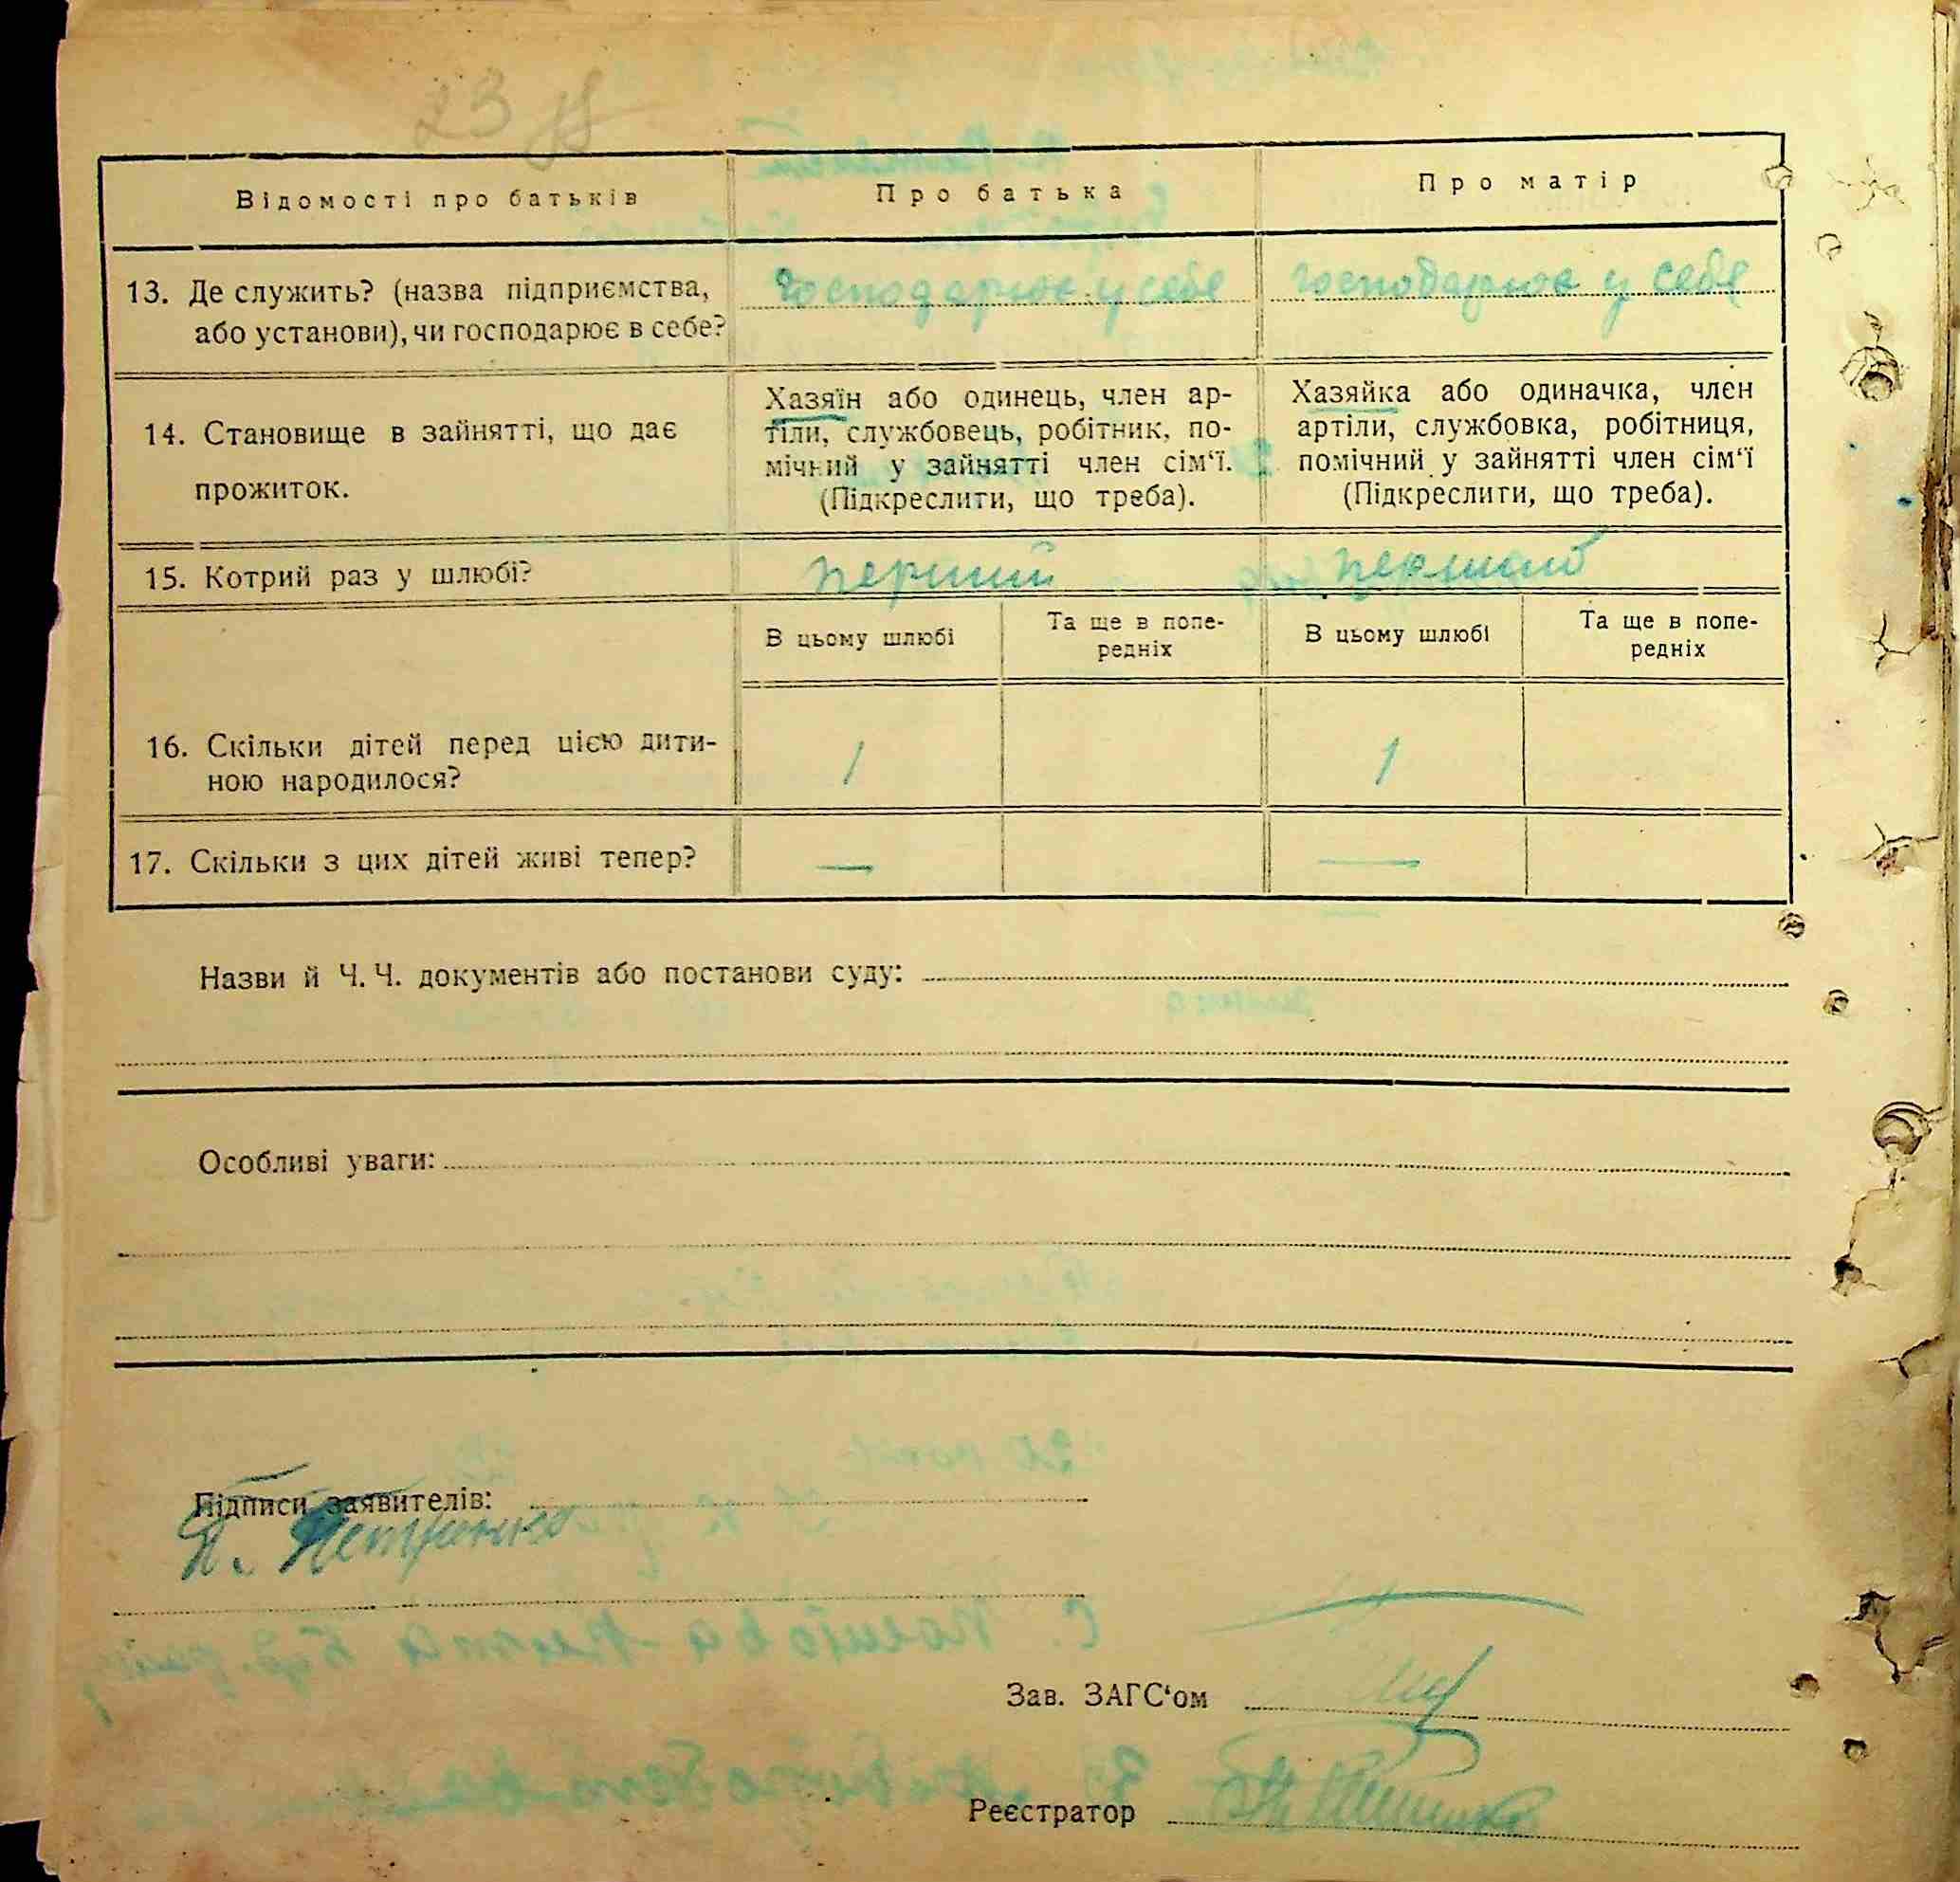 23
Відомості про батьків
Про батька
Про матір
13. Де служить? (назва підприємства,
або установи), чи господарює в себе?
господарює у себе
господарює у себе
14. Становище в зайнятті, що дає
прожиток.
Хазяїн або одинець, член ар-
тіли, службовець, робітник, по-
мічний у зайнятті член сім‘ї.
(Підкреслити, що треба).
Хазяйка або одиначка, член
артіли, службовка, робітниця,
помічний у зайнятті член сім‘ї
(Підкреслити, що треба).
15. Котрий раз у шлюбі?
перший
В цьому шлюбі
Та ще в попе-
редніх
В цьому шлюбі
Та ще в попе-
редніх
16. Скільки дітей перед цією дити-
ною народилося?
1
1
17. Скільки з цих дітей живі тепер?
—
—
Назви й Ч. Ч. документів або постанови суду:
Особливі уваги:
Підписи заявителів:
П. Петренко
Зав. ЗАГС‘ом
Реєстратор